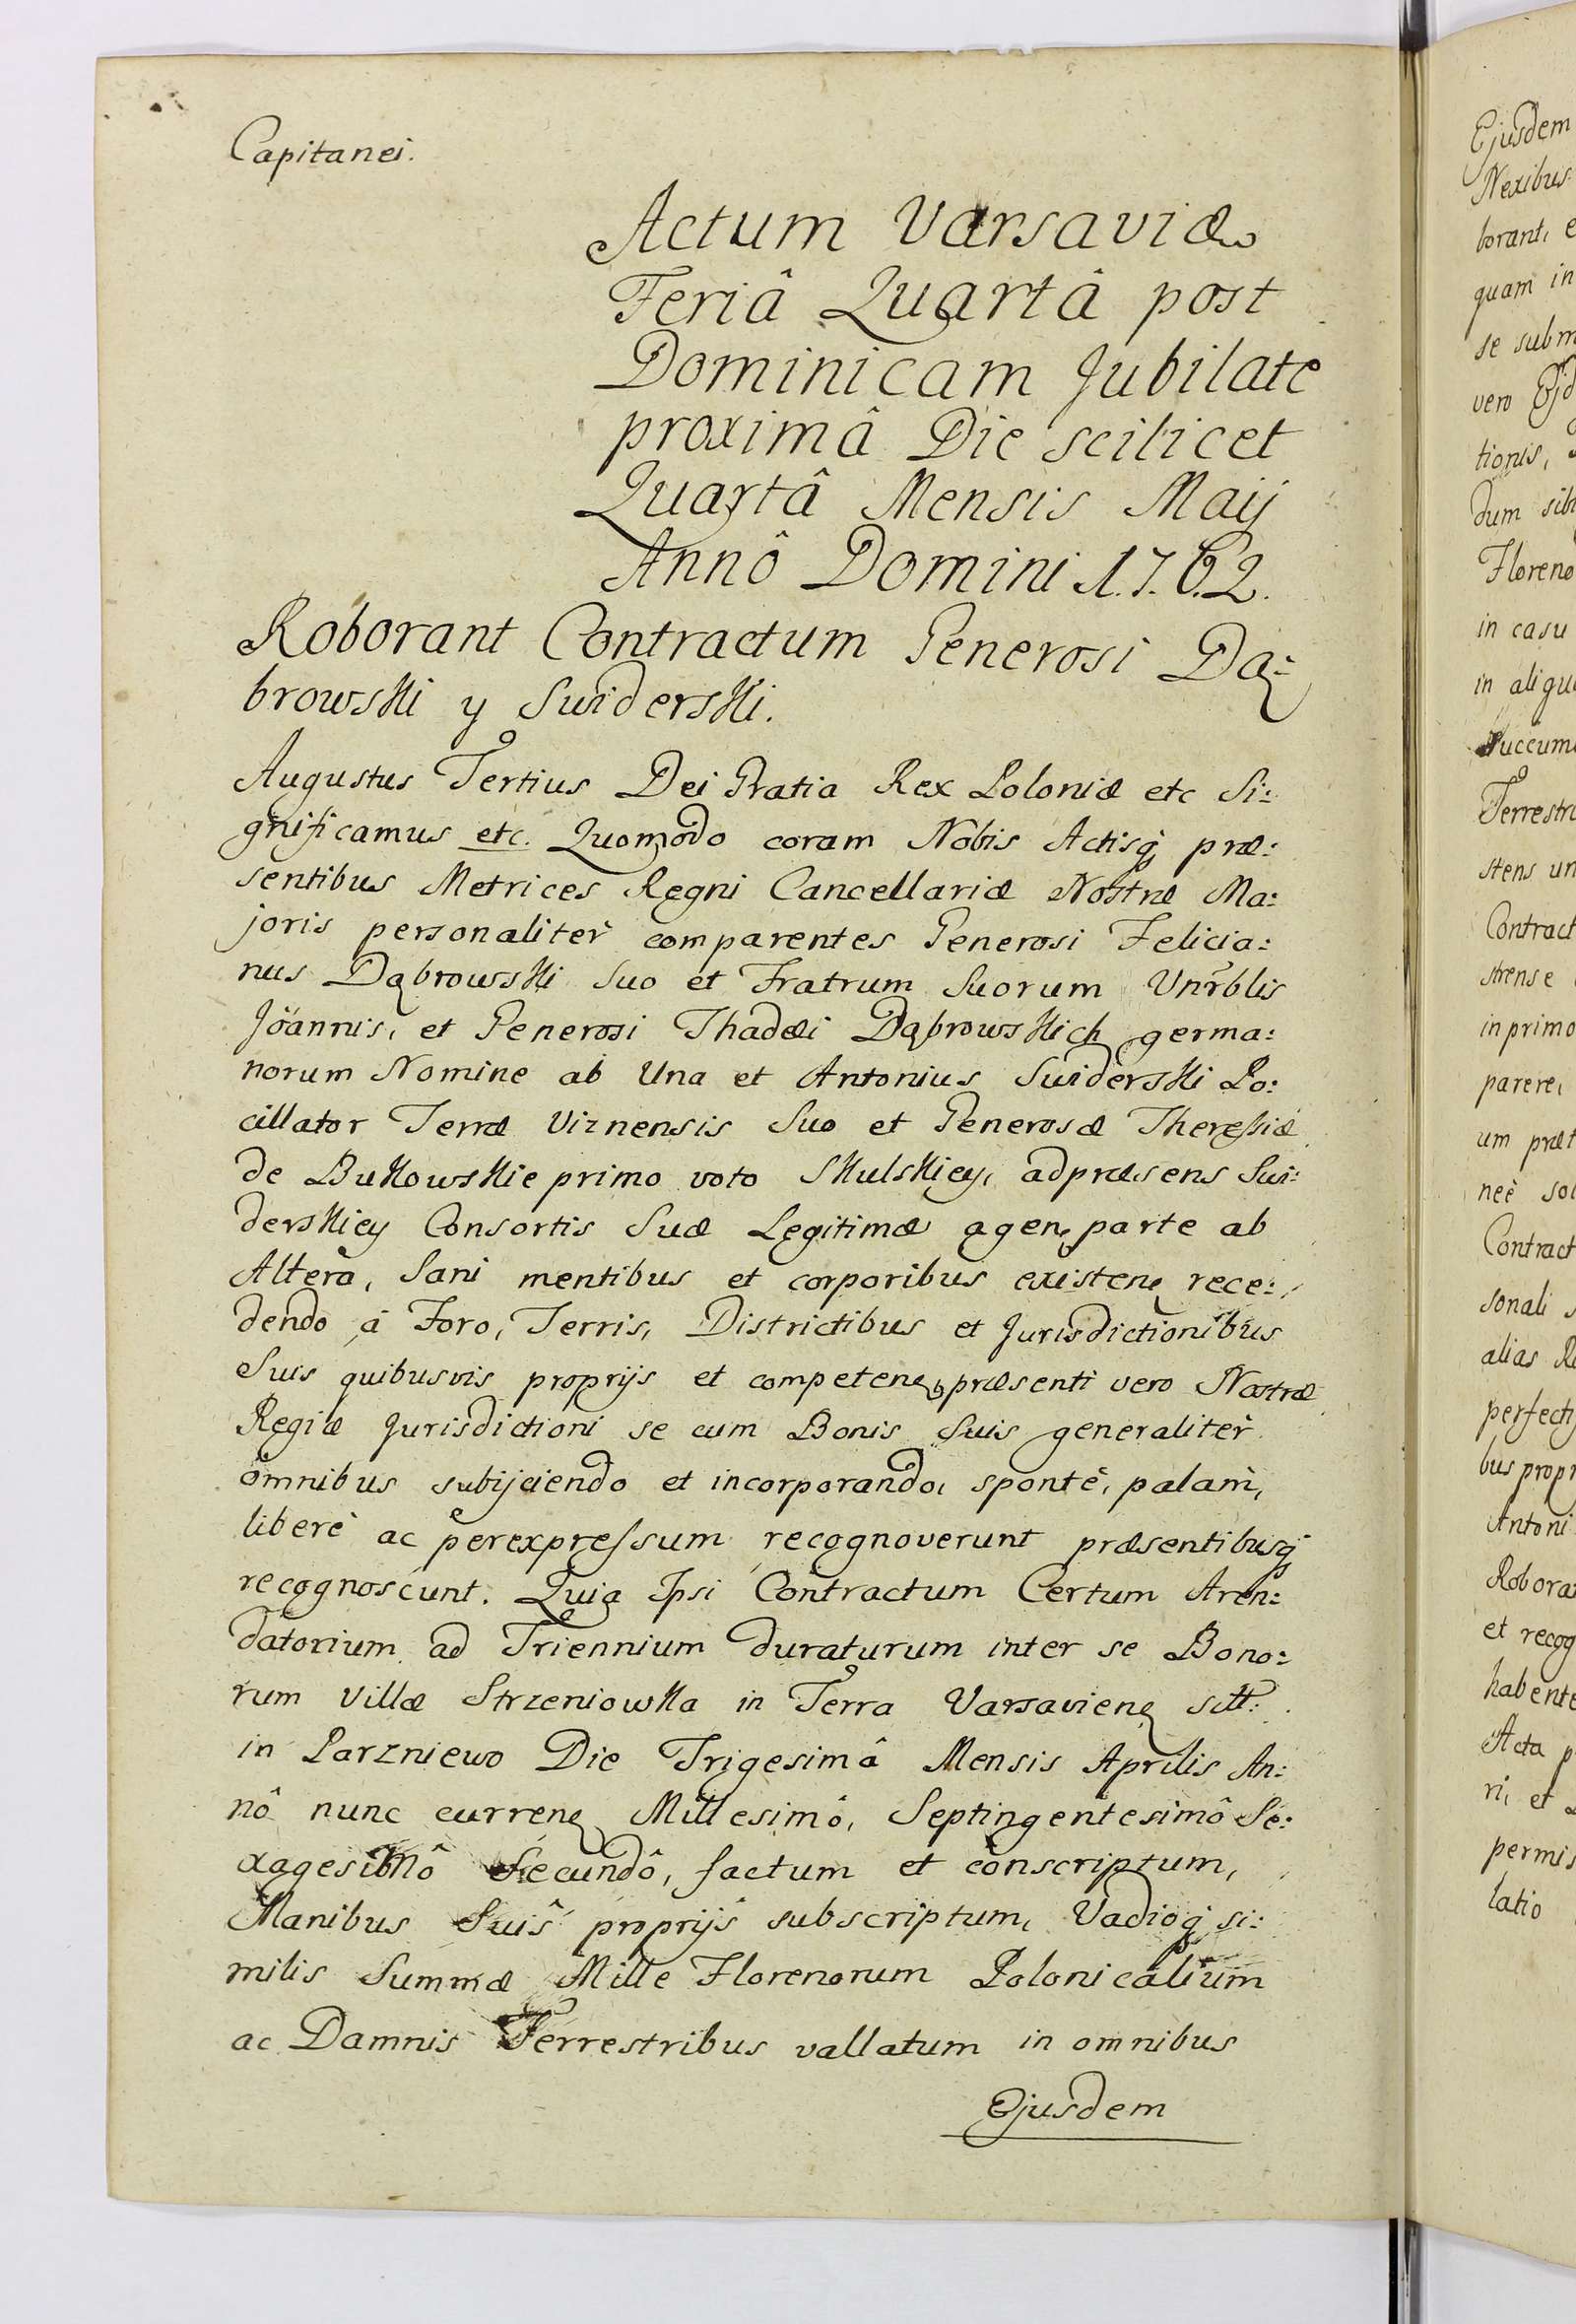 Capitanei.
Actum Varsaviæ
Feriâ Quartâ post
Dominicam Jubilate
proximâ Die scilicet
Quartâ Mensis Maij
Annô Domini 1.7.6.2.
Roborant Contractum Generosi Dą:
browski y Swiderski.
Augustus Tertius Dei Gratia Rex Poloniæ etc Si:
gnificamus etc. Quomodo coram Nobis Actisq́ præ:
sentibus Metrices Regni Cancellariæ Nostræ Ma:
joris personalitèr comparentes Generosi Felicia:
nus Dąbrowski Suo et Fratrum Suorum Vnrblis
Joannis, et Generosi Thadæi Dąbrowskich germa:
norum Nomine ab Una et Antonius Swiderski Po:
cillator Terræ Viznensis Suo et Generosæ Theressiæ
de Bukowskie primo voto Skulskiey, adpræsens Swi:
derskiey Consortis Suæ Legitimæ agen parte ab
Alterà, Sani mentibus et corporibus existen rece:
dendo à Foro, Terris, Districtibus et Jurisdictionibus
Suis quibusvis proprijs et competen præsenti vero Nostræ
Regiæ Jurisdictioni se cum Bonis Suis generalitèr
omnibus subijciendo et incorporando, spontè, palam̀,
liberè ac perexpressum recognoverunt præsentibusq́
recognoscunt. Quia Ipsi Contractum Certum Aren:
datorium ad Triennium duraturum inter se Bono:
rum Villæ Strzeniowka in Terra Varsavien sitt:
in Parzniewo Die Trigesimâ Mensis Aprilis An:
nô nunc curren Millesimô, Septingentesimô Se:
xagesimô Secundô, factum et conscriptum,
Manibus Suis proprijs subscriptum, Vadioq́ si:
milis Summæ Mille Florenorum Polonicalium
ac Damnis Terrestribus vallatum in omnibus
Ejusdem
Ejusdem
Nexibus
borant, e
quam in
se subm
vero Ejd
tionis,
dum sib
Floreno
in casu
in aliqu
succum
Terrestri
stens un
Contract
strense
in primo
parere,
um præt
neè sol
Contract
sonali s
alias Re
perfecti
bus propr
Antoni
Robora
et recog
habente
Acta p
ri, et
permis
latio